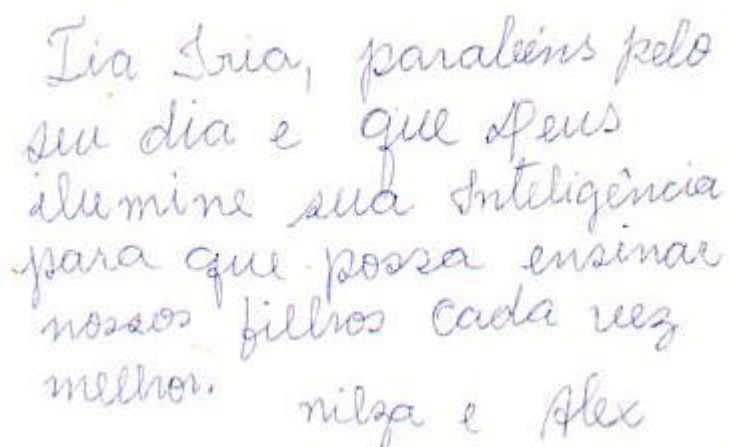 Tia Iria, parabéns pelo
seu dia e que Deus
ilumine sua Inteligência
para que possa ensinar
nossos filhos cada vez
melhor.
nilza e Alex